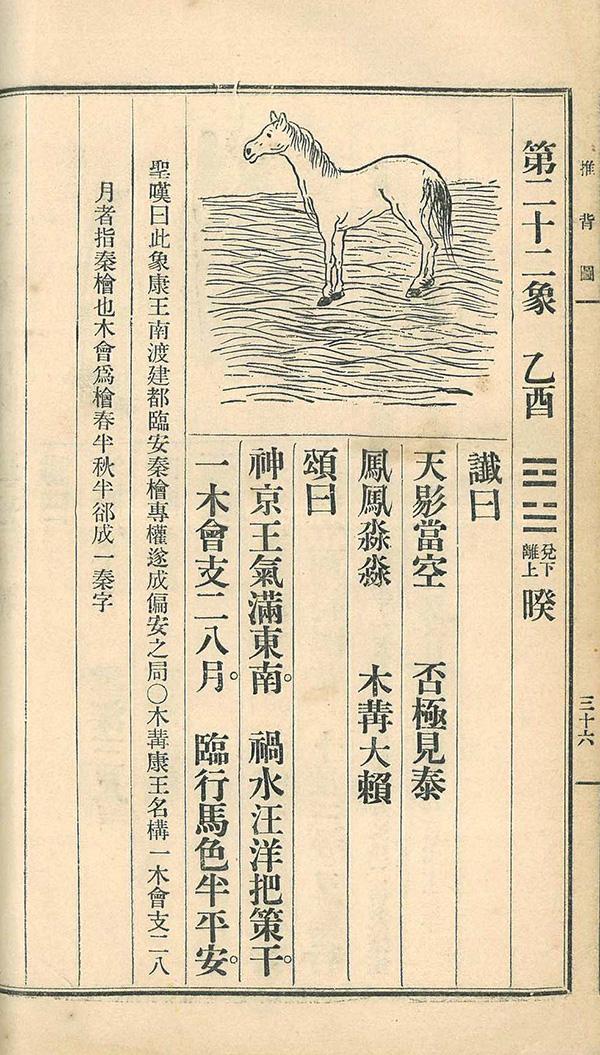 推背圖
三十六
第二十二象 乙酉 兌下離上 暌
讖曰
天影當空 否極見泰
鳳鳳淼淼 木冓大賴
頌曰
神京王氣滿東南。 禍水汪洋把策干。
一木會支二八月。 臨行馬色半平安。
聖嘆曰此象康王南渡建都臨安秦檜專權遂成偏安之局○木冓康王名構一木會支二八
月者指秦檜也木會爲檜春半秋半郤成一秦字